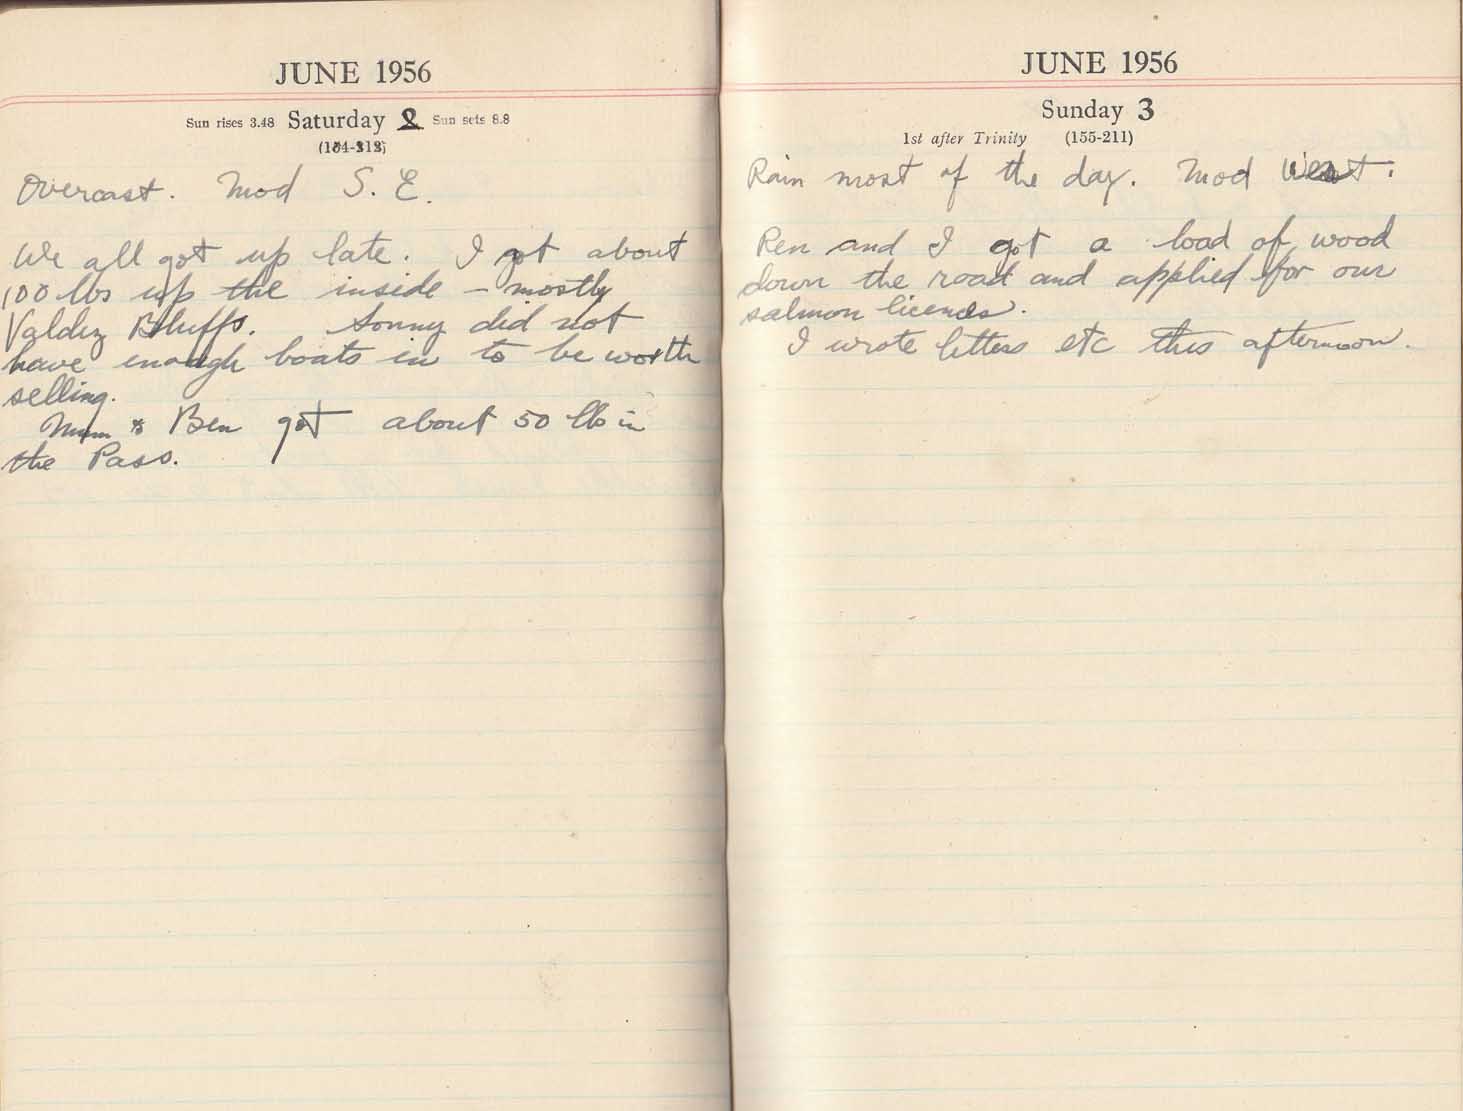 JUNE 1956
Sun rises 3.48 Saturday 2 Sun sets 8.8
(154-212)
Overcast. Mod S. E.
We all got up late. I got about
100 lbs up the inside – mostly
Valdez Bluffs. Sonny did not
have enough boats in to be worth
selling.
Mum & Ben got about 50 lbs in
the Pass.
JUNE 1956
Sunday 3
1st after Trinity (155-211)
Rain most of the day. Mod West.
Ren and I got a load of wood
down the road and applied for our
salmon licends.
I wrote letters etc this afternoon.